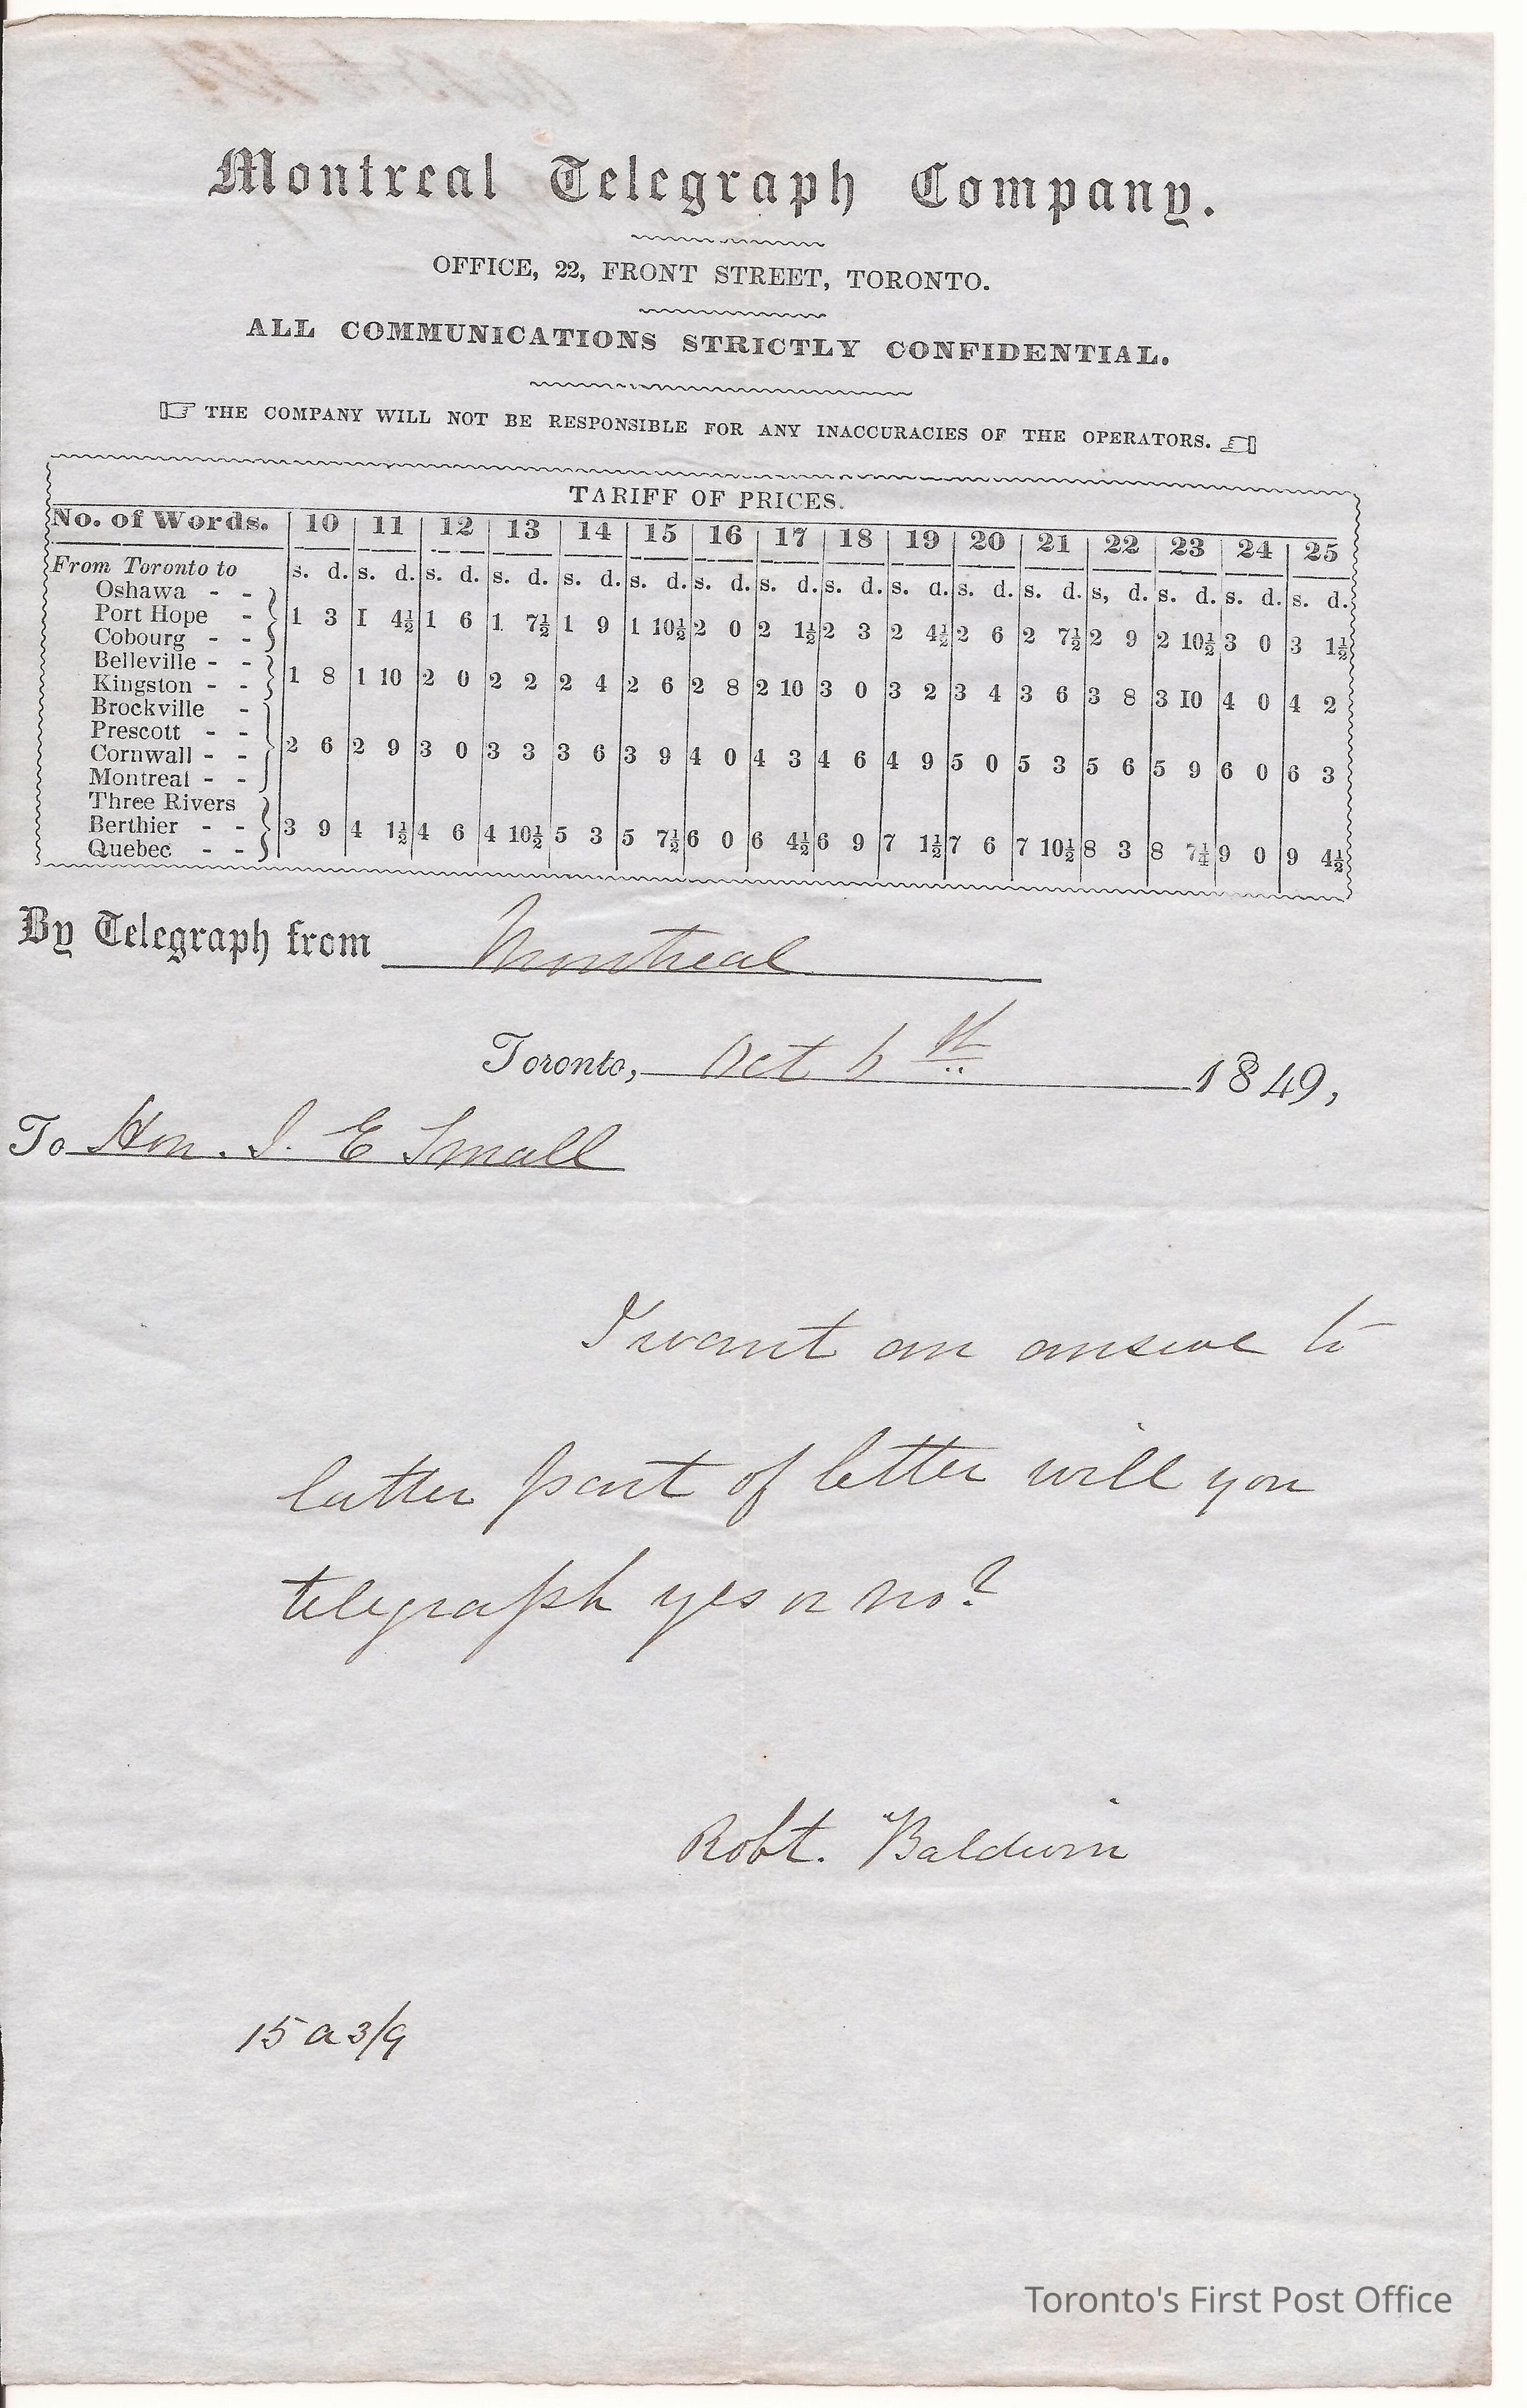 Montreal Telegraph Company.
OFFICE, 22, FRONT STREET, TORONTO.
ALL COMMUNICATIONS STRICTLY CONFIDENTIAL.
THE COMPANY WILL NOT BE RESPONSIBLE FOR ANY INACCURACIES OF THE OPERATORS.
TARIFF OF PRICES.
No. of Words. 10 11 12 13 14 15 16 17 18 19 20 21 22 23 24 25
From Toronto to s. d. s. d. s. d. s. d. s. d. s. d. s. d. s. d. s. d. s. d. s. d. s. d. s, d. s. d. s. d. s. d.
Oshawa - -
Port Hope - 1 3 1 4½ 1 6 1 7½ 1 9 1 10½ 2 0 2 1½ 2 3 2 4½ 2 6 2 7½ 2 9 2 10½ 3 0 3 1½
Cobourg - -
Belleville - -
Kingston - - 1 8 1 10 2 0 2 2 2 4 2 6 2 8 2 10 3 0 3 2 3 4 3 6 3 8 3 10 4 0 4 2
Brockville -
Prescott - -
Cornwall - - 2 6 2 9 3 0 3 3 3 6 3 9 4 0 4 3 4 6 4 9 5 0 5 3 5 6 5 9 6 0 6 3
Montreal - -
Three Rivers
Berthier - - 3 9 4 1½ 4 6 4 10½ 5 3 5 7½ 6 0 6 4½ 6 9 7 1½ 7 6 7 10½ 8 3 8 7¼ 9 0 9 4½
Quebec - -
By Telegraph from Montreal
Toronto, Oct 6th 1849,
To Hon. J. E Small
I want an answe to
latter part of letter will you
telegraph yes or no?
Robt. Baldwin
15 a 3/9
Toronto's First Post Office